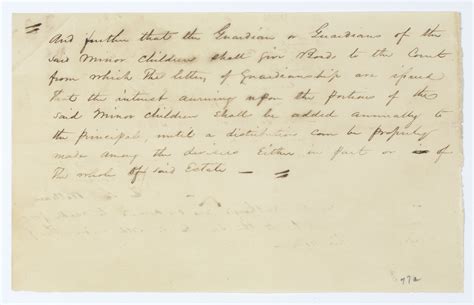 And further that the Guardian or Guardians of the
said Minor Children shall give Bonds to the Court
from which the letters of Guardianship are issued
that the interest accruing upon the portions of the
said Minor Children shall be added annually to
the principal, until a distribution can be properly
made among the devisees Either in part or of
the whole Of said Estate —
77a